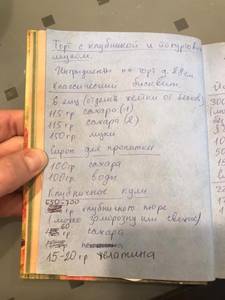 Торт с клубникой и йогуртовым
муссом.
Ингредиенты на торт д. 28см
Классический бисквит.
6 яиц (отделить желтки от белков)
115 гр сахара (1)
115 гр сахара (2)
150 гр муки
Сироп для пропитки
100 гр сахара
100 гр воды
Клубничное кули
гр клубничного пюре
(можно заморозку или свежее)
60 гр сахара
15-20 гр желатина